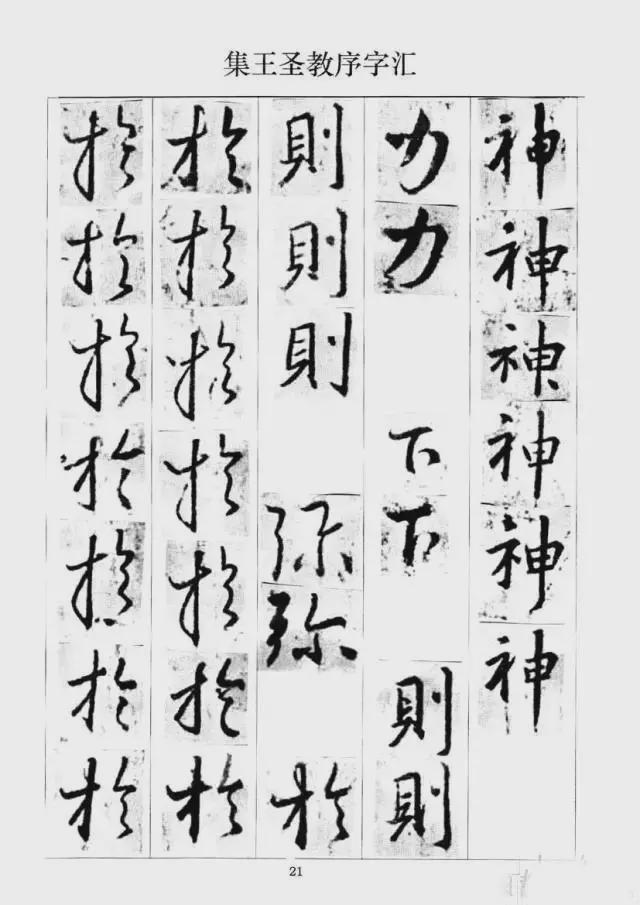 集王圣教序字汇
神神神神神神
力力下下則則
則則則弥弥於
於於於於於於於
於於於於於於於
21